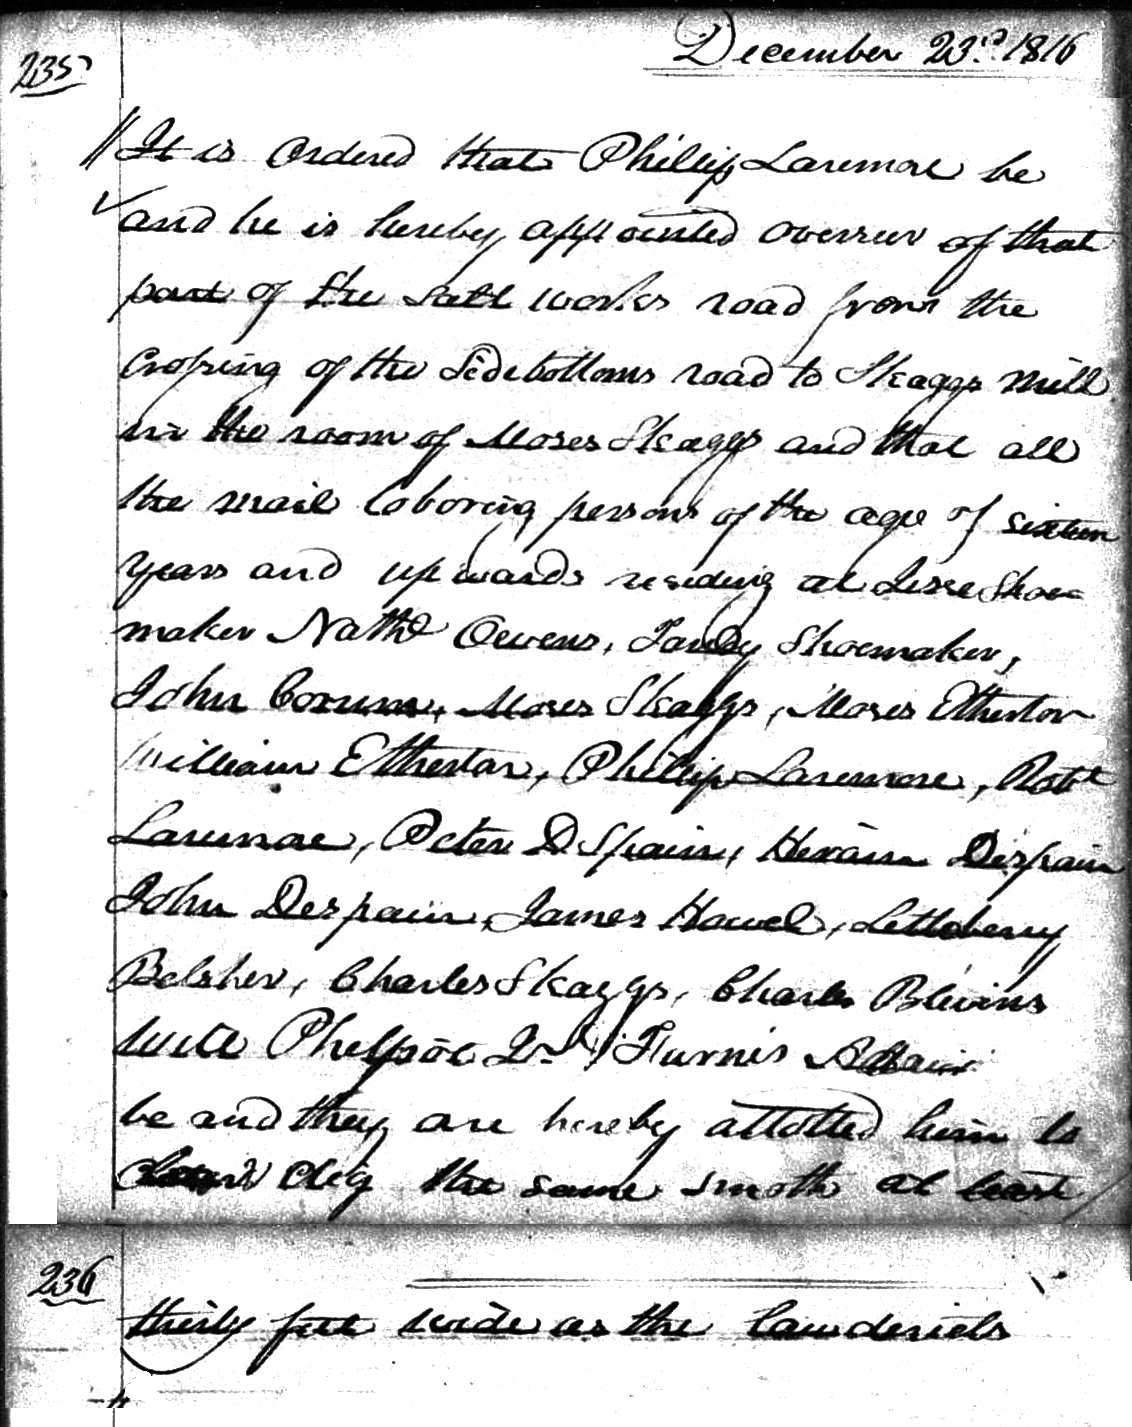 235
December 23rd 1816
It is Ordered that Phillip Laremore be
and he is hereby appointed overseer of that
part of the Salt works road from the
Crossing of the Sidebottoms road to Skaggs Mill
in the room of Moses Skaggs and that all
the mail laboring persons of the age of sixteen
years and upwards residing at Jesse Shoe
maker Nathl Owens, Tandy Shoemaker,
John Corum, Moses Skaggs, Moses Etherton
William Etherton, Phillip Laremore, Robt
Laremore, Peter DSpain, Hiram Despain
John Despain, James Howel, Littleberry
Belsher, Charles Skaggs, Charles Blevins
Will Phelps Jr Adair
be and they are hereby allotted him to
dig the same smoth at least
236
thirty feet wide as the law derícts